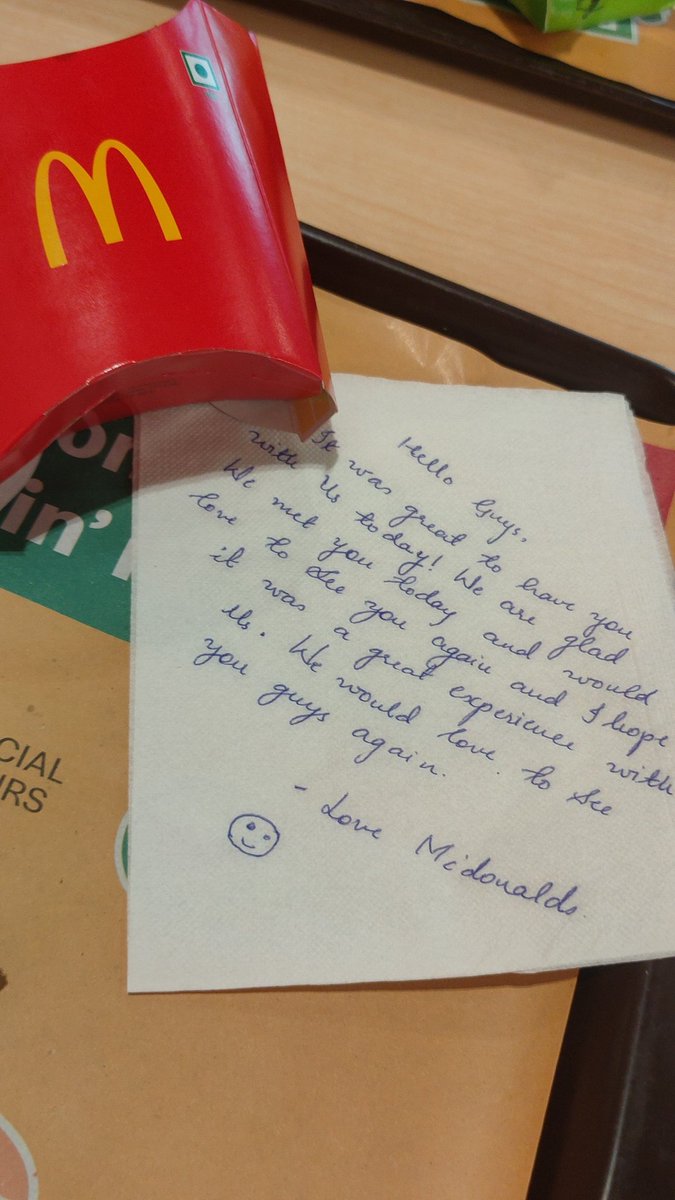 M
on
in'
CIAL
URS
Hello Guys,
It was great to have you
with Us today! We are glad
We met you today and would
love to see you again and I hope
it was a great experience with
Us. We would love to see
you guys again.
- Love Mcdonalds.